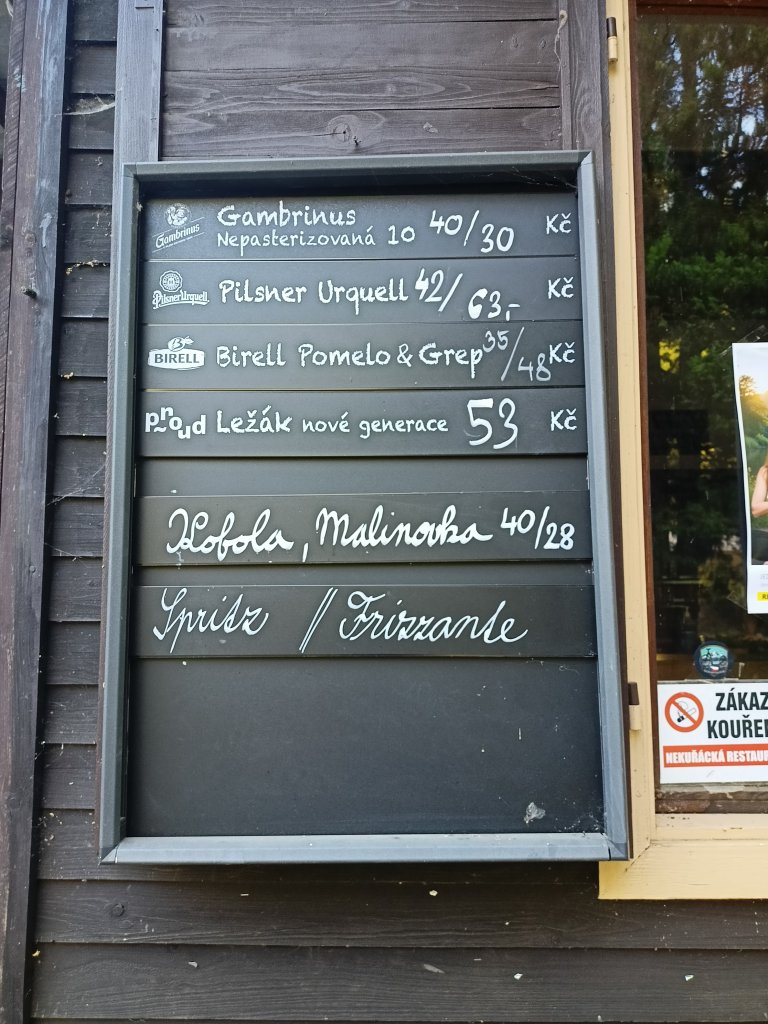 Gambrinus
Gambrinus
Nepasterizovaná 10 40/30 Kč
Pilsner Urquell
Pilsner Urquell 42/63,- Kč
BIRELL
Birell Pomelo & Grep 35/48 Kč
proud
Ležák nové generace 53 Kč
Kobola, Malinovka 40/28
Spritz // Frizzante
ZÁKAZ
KOUŘE
NEKUŘÁCKÁ RESTAUR